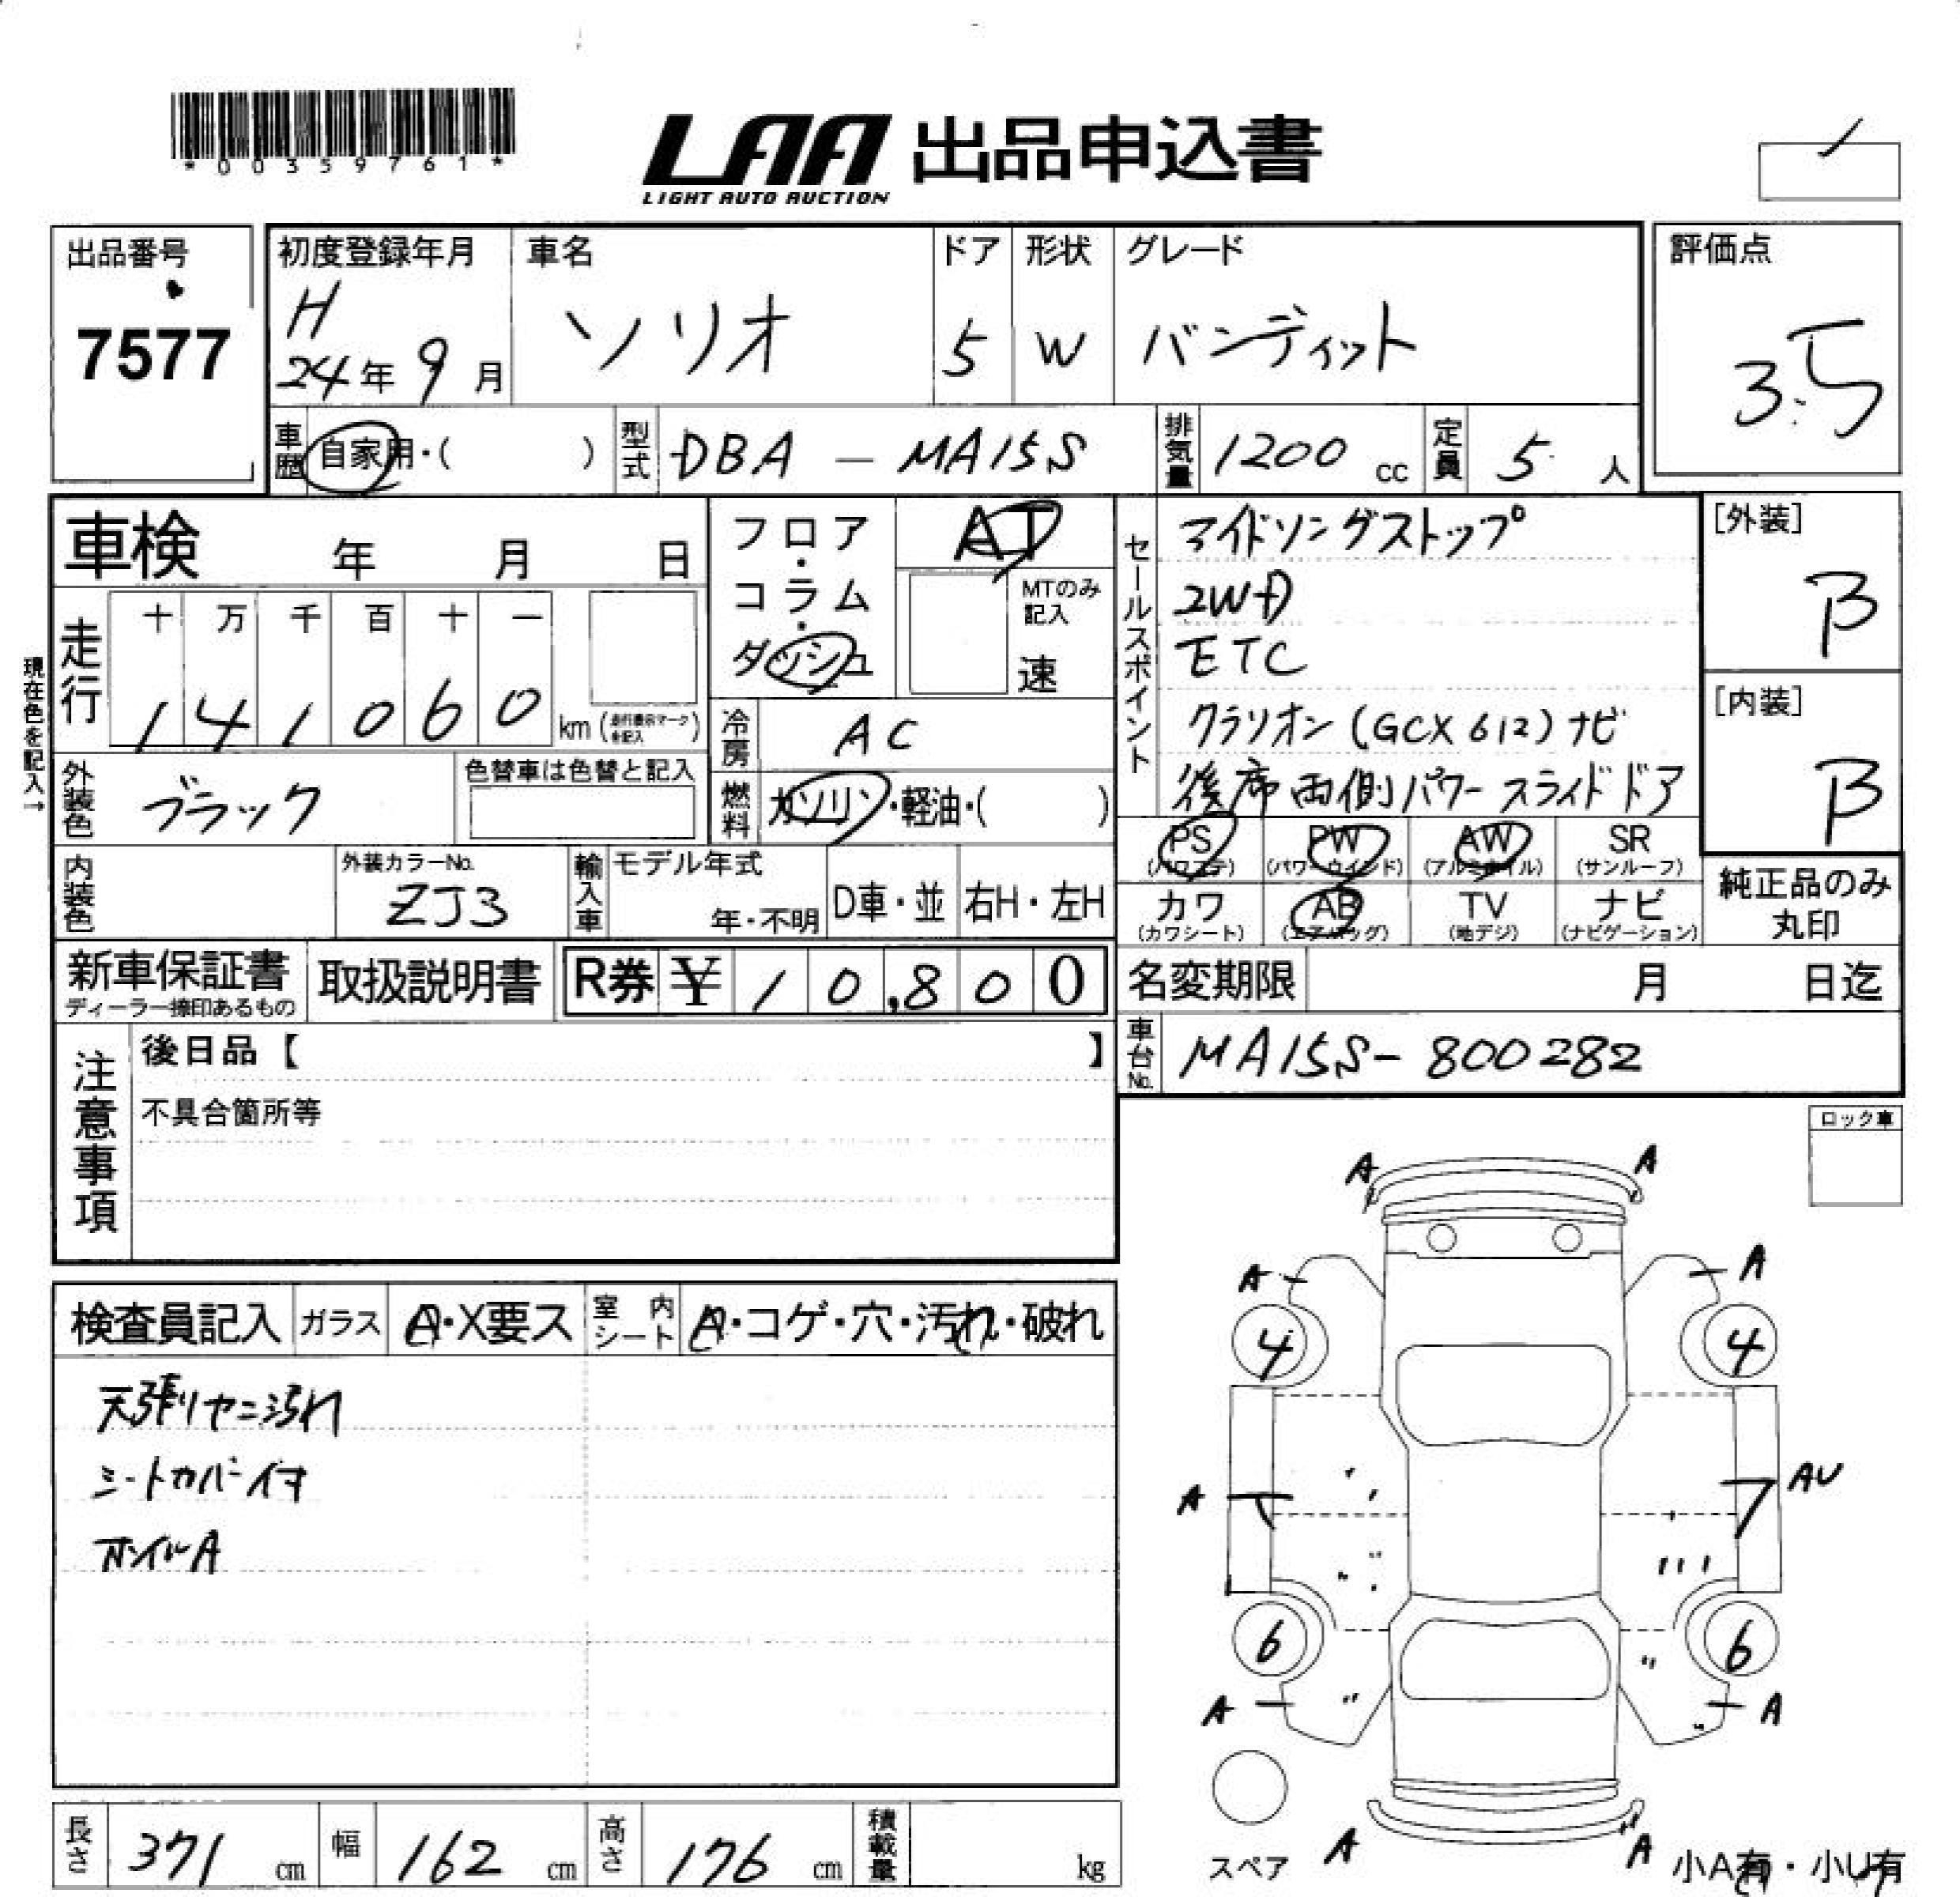 *00359761*
LAA 出品申込書
LIGHT AUTO AUCTION
出品番号
7577
初度登録年月
H
24年 9月
車名
ソリオ
ドア
5
形状
W
グレード
バンディット
評価点
3.5
車歴 自家用・( )
型式 DBA - MA15S
排気量 1200 cc
定員 5 人
車検 年 月 日
フロア・コラム・ダッシュ
AT
MTのみ記入
速
セールスポイント
アイドリングストップ
2WD
ETC
クラリオン(GCX612)ナビ
後席両側パワースライドドア
[外装]
B
[内装]
B
現在色を記入→
走行
十 万 千 百 十 一
1 4 1 0 6 0 km (走行表示マークを記入)
冷房 AC
外装色 ブラック
色替車は色替と記入
燃料 ガソリン・軽油・( )
PS (パワステ)
PW (パワーウインド)
AW (アルミホイル)
SR (サンルーフ)
カワ (カワシート)
AB (エアバッグ)
TV (地デジ)
ナビ (ナビゲーション)
純正品のみ丸印
内装色
外装カラーNo.
ZJ3
輸入車
モデル年式
年・不明
D車・並
右H・左H
新車保証書
ディーラー捺印あるもの
取扱説明書
R券 ¥ 10,800
名変期限 月 日迄
車台No. MA15S-800282
注意事項
後日品【 】
不具合箇所等
ロック車
検査員記入
ガラス A・X要ス
室内シート A・コゲ・穴・汚れ・破れ
天張りヤニ汚れ
シートカバー付
ホイルA
A A
A A
4 4
A AU
6 6
A A
スペア
A A
小A有・小U有
長さ 371 cm
幅 162 cm
高さ 176 cm
積載量 kg